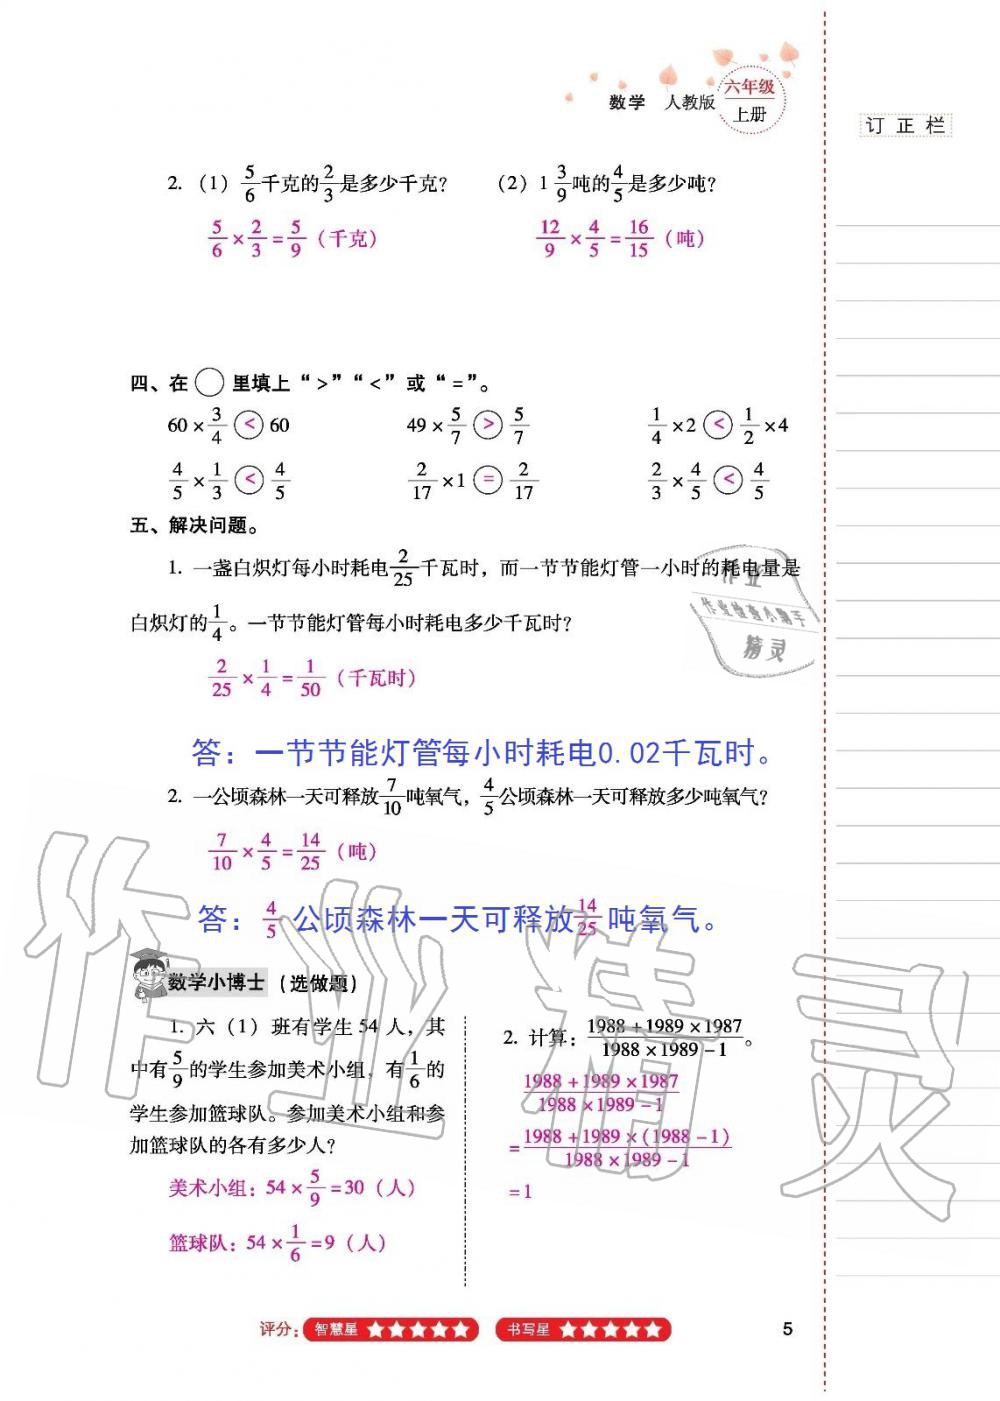 数学 人教版 六年级
上册
订正栏
2. (1) 5/6千克的2/3是多少千克? (2) 1 3/9吨的4/5是多少吨?
5/6×2/3=5/9(千克) 12/9×4/5=16/15(吨)
四、在○里填上“>”“<”或“=”。
60×3/4 < 60 49×5/7 > 5/7 1/4×2 < 1/2×4
4/5×1/3 < 4/5 2/17×1 = 2/17 2/3×4/5 < 4/5
五、解决问题。
1. 一盏白炽灯每小时耗电2/25千瓦时，而一节节能灯管一小时的耗电量是
白炽灯的1/4。一节节能灯管每小时耗电多少千瓦时?
2/25×1/4=1/50(千瓦时)
答：一节节能灯管每小时耗电0.02千瓦时。
2. 一公顷森林一天可释放7/10吨氧气，4/5公顷森林一天可释放多少吨氧气?
7/10×4/5=14/25(吨)
答：4/5公顷森林一天可释放14/25吨氧气。
数学小博士(选做题)
1. 六(1)班有学生54人，其
中有5/9的学生参加美术小组，有1/6的
学生参加篮球队。参加美术小组和参
加篮球队的各有多少人?
美术小组：54×5/9=30(人)
篮球队：54×1/6=9(人)
2. 计算：(1988+1989×1987)/(1988×1989-1)。
(1988+1989×1987)/(1988×1989-1)
=(1988+1989×(1988-1))/(1988×1989-1)
=1
评分：智慧星★★★★★ 书写星★★★★★
5
作业
作业检查小帮手
精灵
作业精灵